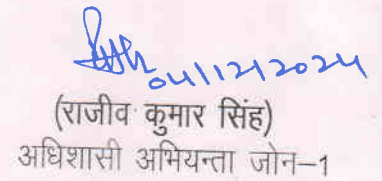 04/12/2024
(राजीव कुमार सिंह)
अधिशासी अभियन्ता जोन–1